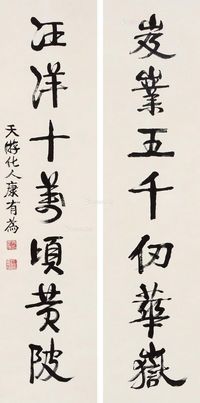 岌業五千仞華嶽
汪洋十萬頃黄陂
天游化人康有為